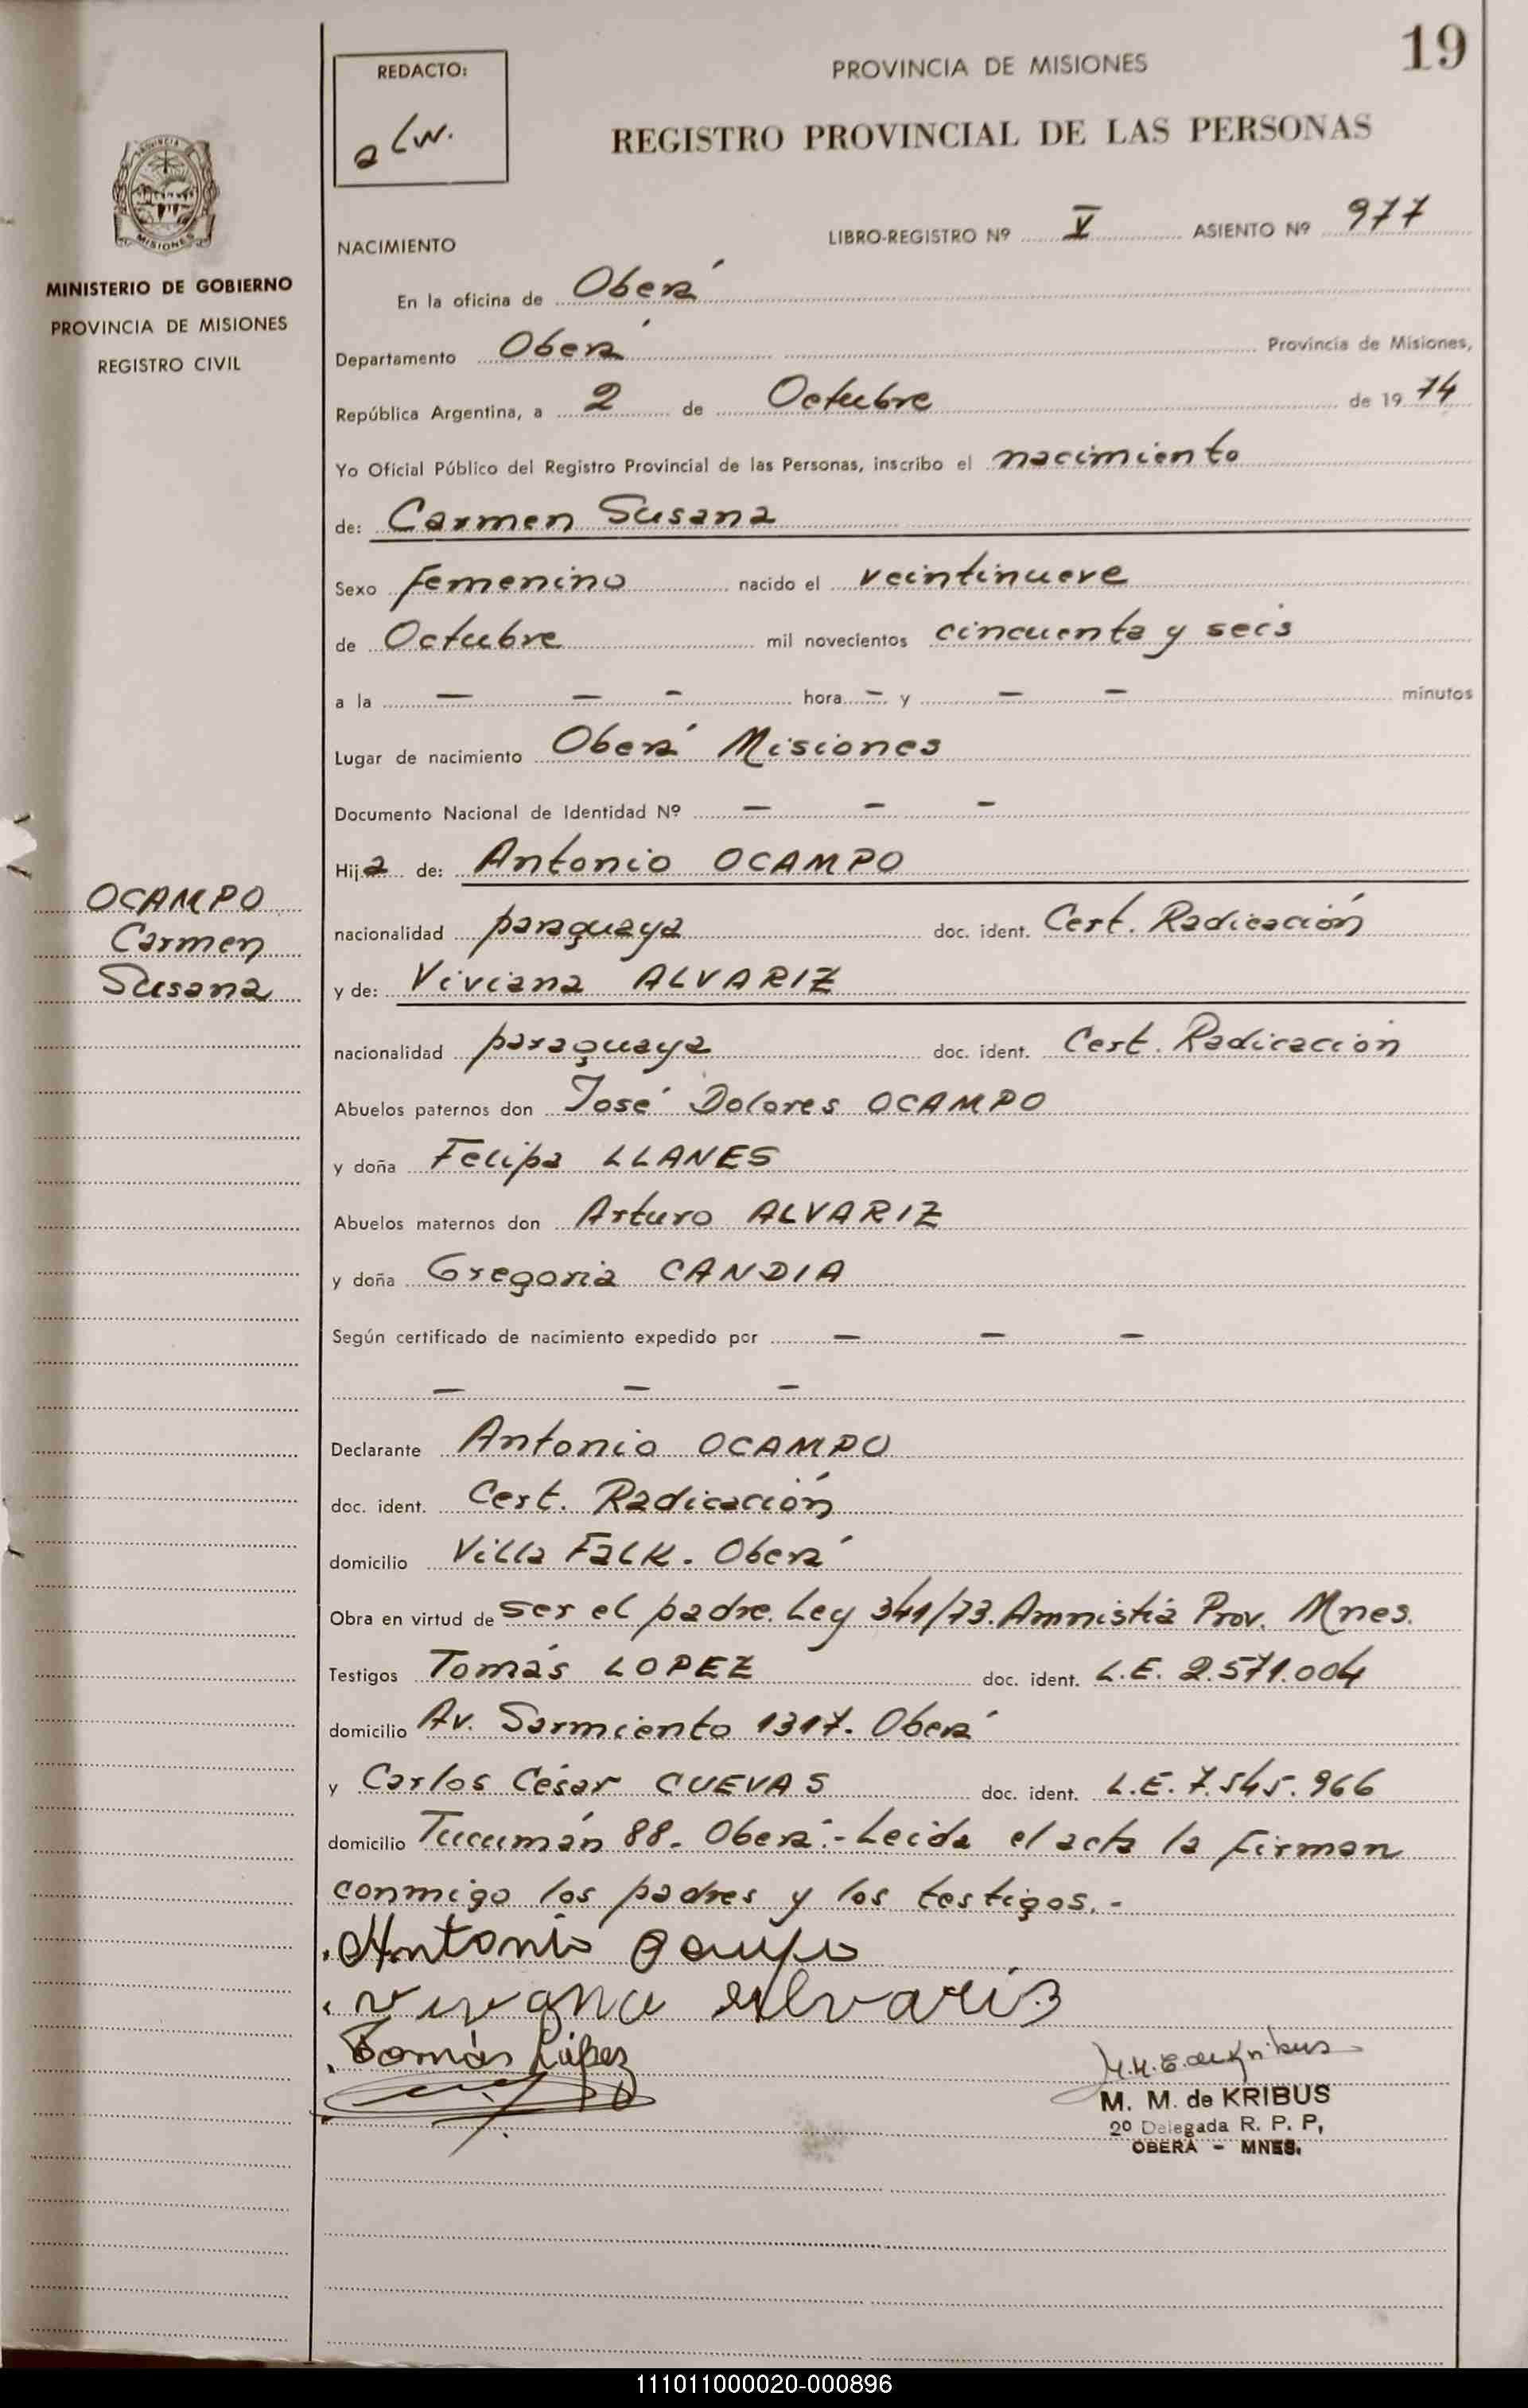 19
REDACTO:
alw.
PROVINCIA DE MISIONES
REGISTRO PROVINCIAL DE LAS PERSONAS
MINISTERIO DE GOBIERNO
PROVINCIA DE MISIONES
REGISTRO CIVIL
NACIMIENTO LIBRO-REGISTRO Nº V ASIENTO Nº 977
En la oficina de Oberá
Departamento Oberá Provincia de Misiones,
República Argentina, a 2 de Octubre de 19 74
Yo Oficial Público del Registro Provincial de las Personas, inscribo el nacimiento
de: Carmen Susana
Sexo femenino nacido el veintinueve
de Octubre mil novecientos cincuenta y seis
a la — — - hora - y — — minutos
Lugar de nacimiento Oberá Misiones
Documento Nacional de Identidad Nº — — —
Hija de: Antonio OCAMPO
OCAMPO
Carmen
Susana
nacionalidad paraguaya doc. ident. Cert. Radicación
y de: Viviana ALVARIZ
nacionalidad paraguaya doc. ident. Cert. Radicación
Abuelos paternos don José Dolores OCAMPO
y doña Felipa LLANES
Abuelos maternos don Arturo ALVARIZ
y doña Gregoria CANDIA
Según certificado de nacimiento expedido por — — —
— — —
Declarante Antonio OCAMPO
doc. ident. Cert. Radicación
domicilio Villa Falk. Oberá
Obra en virtud de ser el padre. Ley 341/73. Amnistia Prov. Mnes.
Testigos Tomás LOPEZ doc. ident. L.E. 2.571.004
domicilio Av. Sarmiento 1317. Oberá
y Carlos César CUEVAS doc. ident. L.E. 7.545.966
domicilio Tucumán 88. Oberá.- Leida el acta la firman
conmigo los padres y los testigos.-
Antonio Ocampo
vivana alvaris
Tomás López
M. M. de KRIBUS
2º Delegada R. P. P,
OBERA - MNES.
111011000020-000896